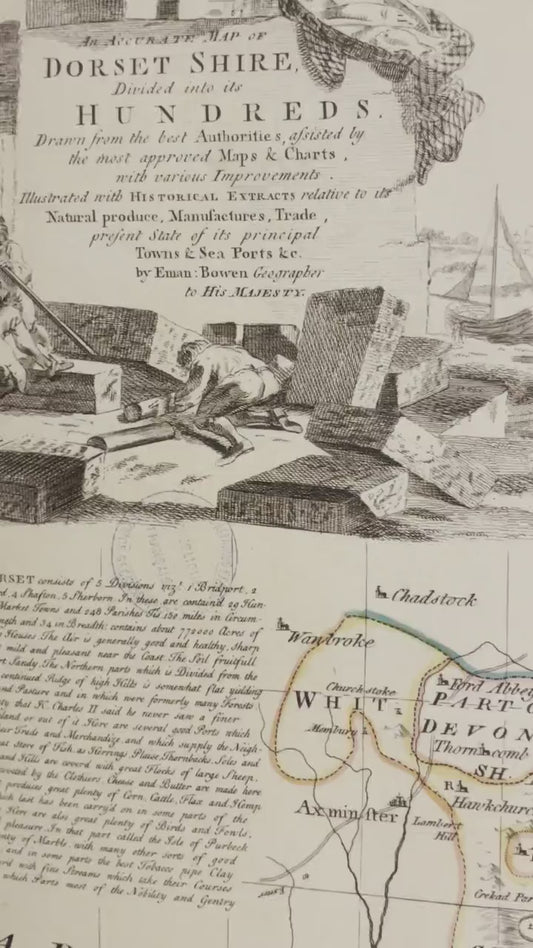 An ACCURATE MAP OF
DORSET SHIRE,
Divided into its
HUNDREDS.
Drawn from the best Authorities, assisted by
the most approved Maps & Charts,
with various Improvements.
Illustrated with HISTORICAL EXTRACTS relative to its
Natural produce, Manufactures, Trade,
present State of its principal
Towns & Sea Ports &c.
by Eman: Bowen Geographer
to His MAJESTY.
RSET consists of 5 Divisions viz! 1 Bridport, 2
4 Shaston, 5 Sherborn In these are containd 29 Hun-
Market Towns and 248 Parishes Tis 150 miles in Circum-
ngth and 34 in Breadth: contains about 772000 Acres of
Houses. The Air is generally good and healthy, sharp
mild and pleasant near the Coast. The Soil fruitfull
Sandy. The Northern parts which is Divided from the
continued Ridge of high Hills is somewhat flat yielding
and Pasture and in which were formerly many Forests
ty that K. Charles II said he never saw a finer
land or out of it Here are several good Ports which
ur Trade and Merchandize and which supply the Neigh-
at Store of Fish, as Herrings Plaise, Thornbacks, Soles and
and Hills are coverd with great Flocks of large Sheep,
by the Clothiers Cheese and Butter are made here
produces great plenty of Corn, Cattle, Flax and Hemp
ch last has been carry'd on in some parts of the
Here are also great plenty of Birds and Fowls,
pleasure. In that part called the Isle of Purbeck
nty of Marble with many other sorts of good
and in some parts the best Tobacco pipe Clay
rd with fine Streams which take their Courses
which Parts most of the Nobility and Gentry
Chadstock
Wanbroke
Churchstoke
Ford Abbey
WHIT
PART O
Membury
DEVON
Thorncomb
SH.
R
Hawkchurc
Axminster
Lambert
Hill
Crekad Par